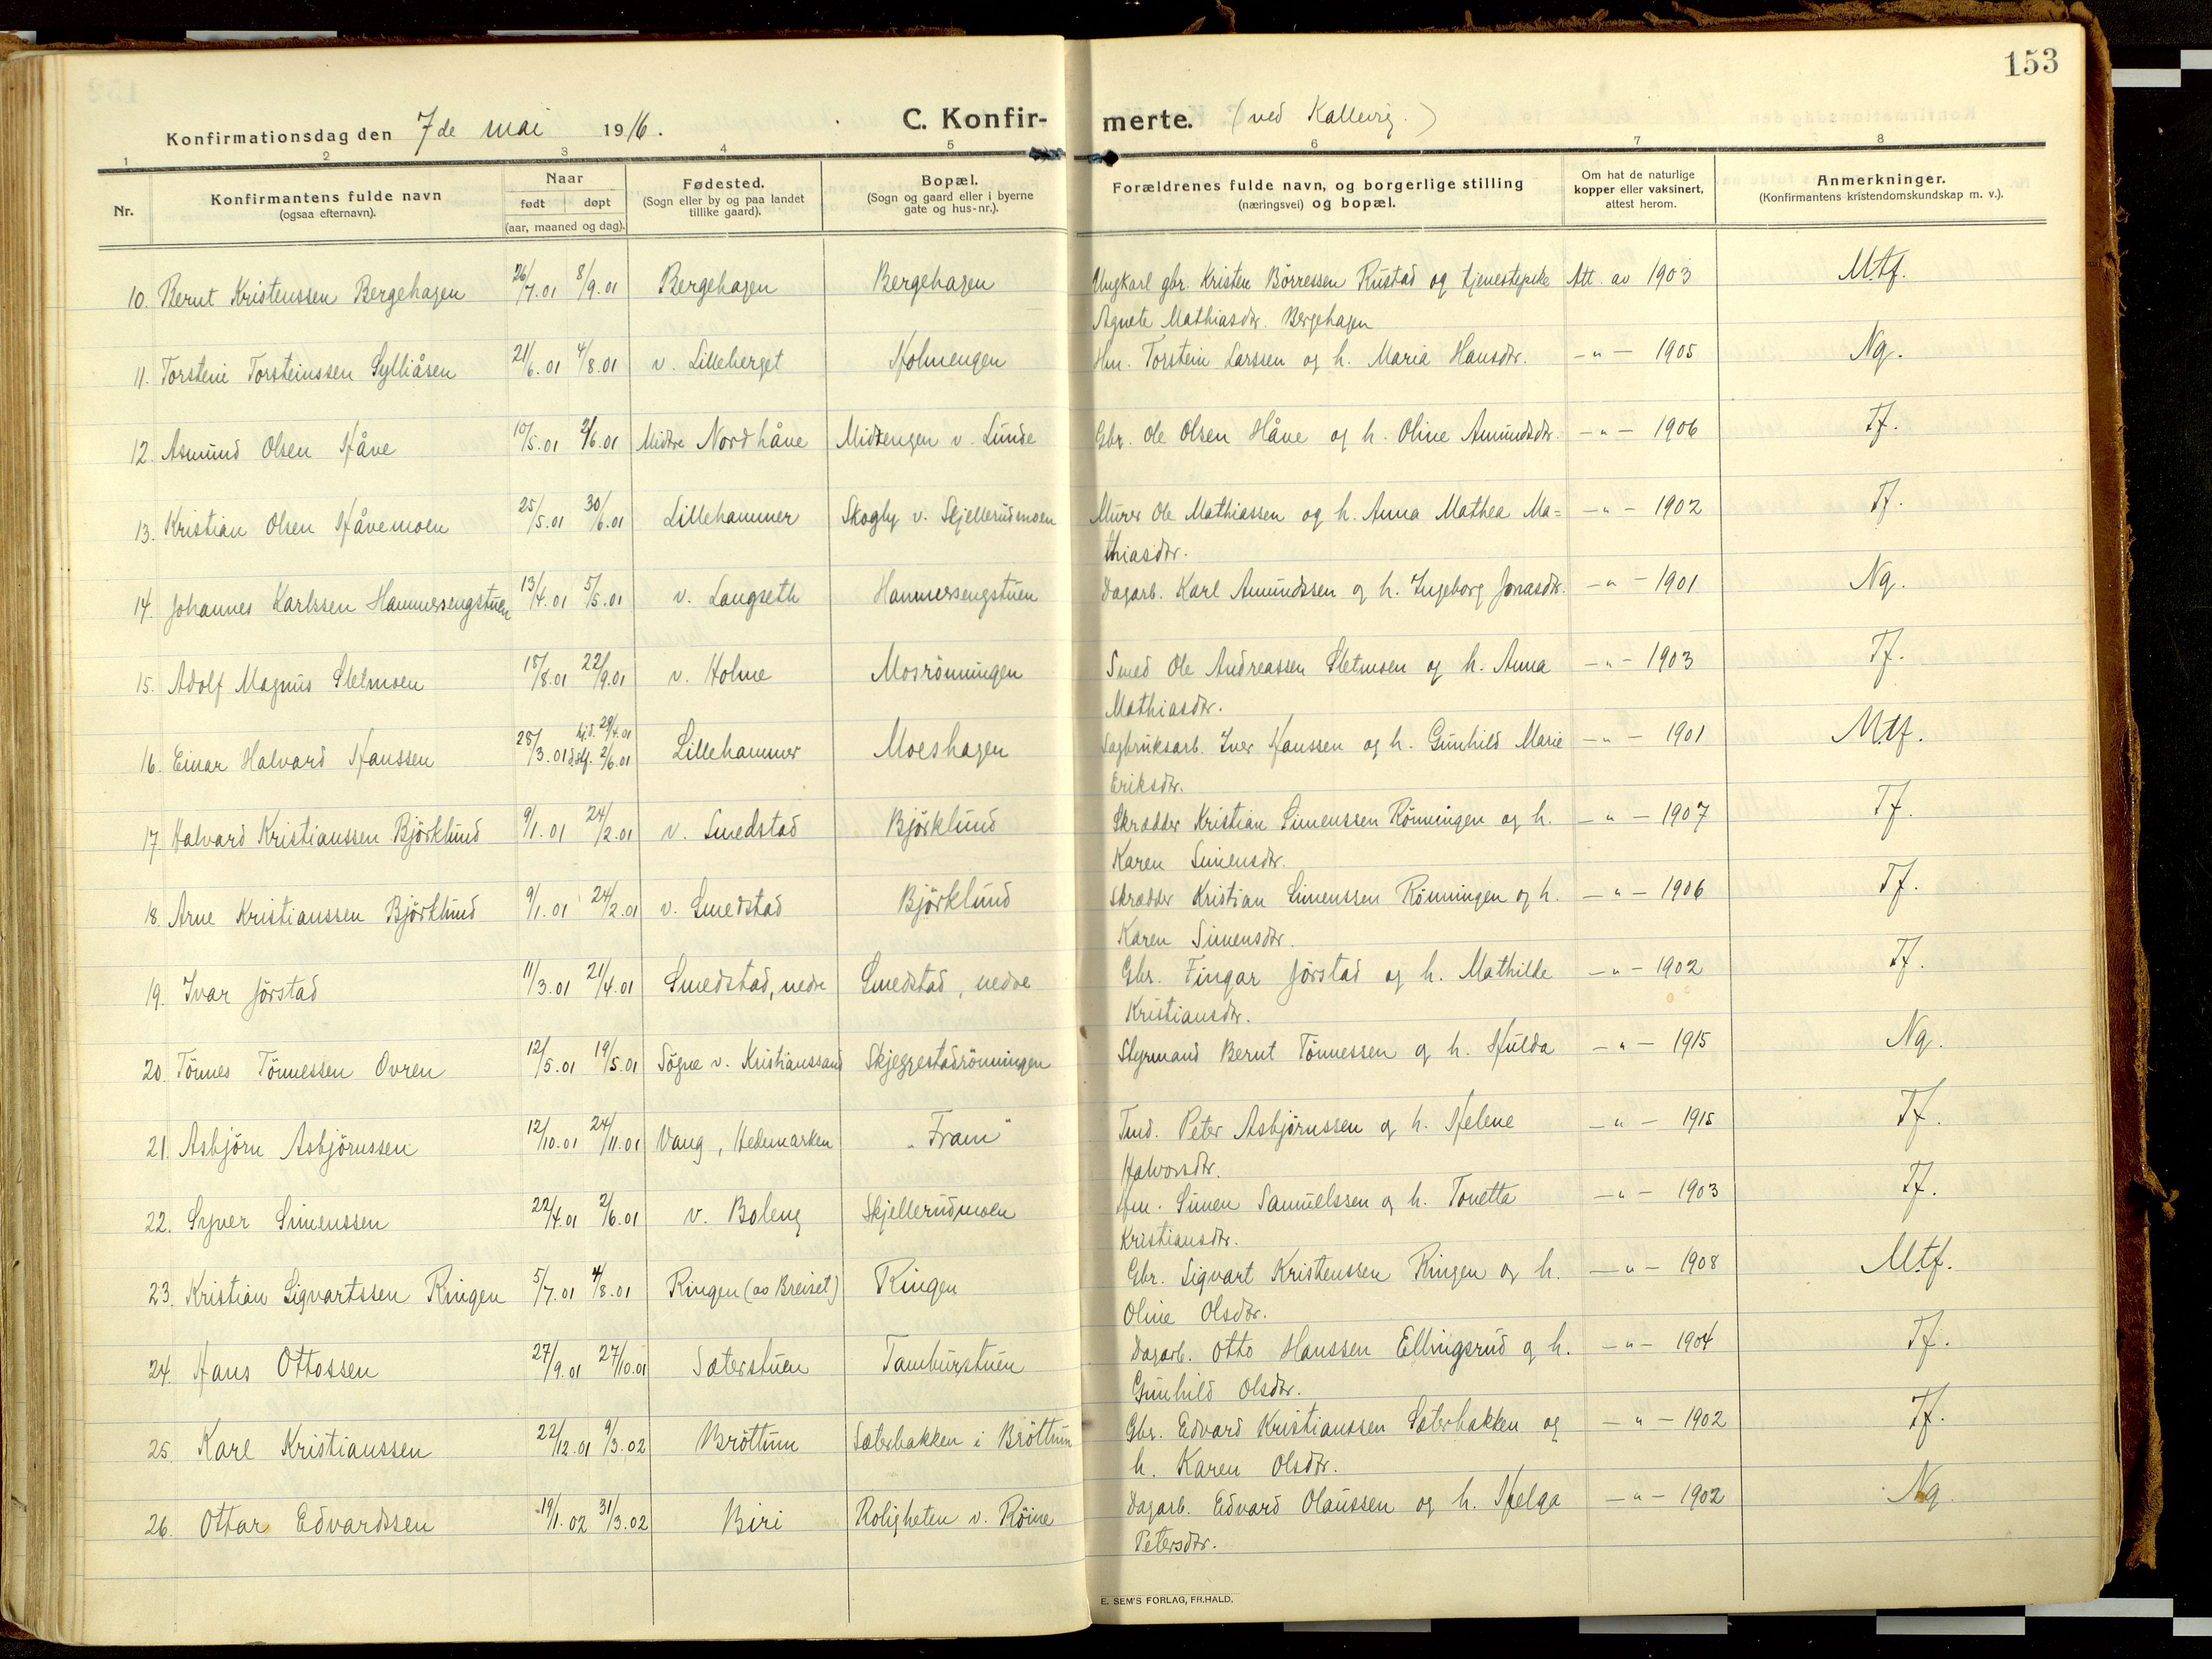 153
Konfirmationsdag den 7de mai 1916. C. Konfir- merte. (ved Kallevig.)
1 2 3 4 5 6 7 8
Nr.
Konfirmantens fulde navn
(ogsaa efternavn).
Naar
født døpt
(aar, maaned og dag).
Fødested.
(Sogn eller by og paa landet
tillike gaard).
Bopæl.
(Sogn og gaard eller i byerne
gate og hus-nr.).
Forældrenes fulde navn, og borgerlige stilling
(næringsvei) og bopæl.
Om hat de naturlige
kopper eller vaksinert,
attest herom.
Anmerkninger.
(Konfirmantens kristendomskundskap m. v.).
10. Bernt Kristenssen Bergehagen 26/7.01 8/9.01 Bergehagen Bergehagen Ungkarl gbr. Kristen Börressen Rustad og tjenestepike Att. av 1903 Mtf.
Agnete Mathiasdtr. Bergehagen
11. Torstein Torsteinssen Sylliåsen 21/6.01 4/8.01 v. Lilleberget Holmengen Hm. Torstein Larssen og h. Maria Hansdtr. -"- 1905 Ng.
12. Asmund Olsen Håve 10/5.01 2/6.01 Midtre Nordhåve Midtengen v. Lunde Gbr. Ole Olsen Håve og h. Oline Amundsdtr. -"- 1906 Tf.
13. Kristian Olsen Håvemoen 25/5.01 30/6.01 Lillehammer Skogly v. Skjellerudmoen Murer Ole Mathiassen og h. Anna Mathea Ma= -"- 1902 Tf.
thiasdtr.
14. Johannes Karlssen Hammersengstuen 13/4.01 5/5.01 v. Langseth Hammersengstuen Dagarb. Karl Amundssen og h. Ingeborg Jonasdtr. -"- 1901 Ng.
15. Adolf Magnus Sletmoen 18/8.01 22/9.01 v. Holme Mosrönningen Smed Ole Andreassen Sletmoen og h. Anna -"- 1903 Tf.
Mathiasdtr.
16. Einar Halvard Hanssen 28/3.01 hjd. 29/4.01 Lillehammer Moeshagen Sagbruksarb. Iver Hanssen og h. Gunhild Marie -"- 1901 Mtf.
2/6.01
Eriksdtr.
17. Halvard Kristianssen Björklund 9/1.01 24/2.01 v. Smedstad Björklund Skrædder Kristian Simenssen Rönningen og h. -"- 1907 Tf.
Karen Simensdtr.
18. Arne Kristianssen Björklund 9/1.01 24/2.01 v. Smedstad Björklund Skrædder Kristian Simenssen Rönningen og h. -"- 1906 Tf.
Karen Simensdtr.
19. Ivar Jörstad 11/3.01 21/4.01 Smedstad, nedre Smedstad, nedre Gbr. Fingar Jörstad og h. Mathilde -"- 1902 Tf.
Kristiansdtr.
20. Tönnes Tönnessen Ovren 12/5.01 19/5.01 Sögne v. Kristianssand Skjeggestadrönningen Styrmand Bernt Tönnessen og h. Hulda -"- 1915 Ng.
21. Asbjörn Asbjörnssen 12/10.01 24/11.01 Vang, Hedemarken "Fram" Tmd. Peter Asbjörnssen og h. Helene -"- 1915 Tf.
Halvorsdtr.
22. Syver Simenssen 22/4.01 2/6.01 v. Boleng Skjellerudmoen Hm. Simen Samuelssen og h. Tonetta -"- 1903 Tf.
Kristiansdtr.
23. Kristian Sigvartssen Ringen 5/7.01 4/8.01 Ringen (av Breiset) Ringen Gbr. Sigvart Kristenssen Ringen og h. -"- 1908 Mtf.
Oline Olsdtr.
24. Hans Ottossen 27/9.01 27/10.01 Sæterstuen Tamburstuen Dagarb. Otto Hanssen Ellingsrud og h. -"- 1904 Tf.
Gunhild Olsdtr.
25. Karl Kristianssen 22/12.01 9/3.02 Bröttum Sæterbakken i Bröttum Gbr. Edvard Kristianssen Sæterbakken og -"- 1902 Tf.
h. Karen Olsdtr.
26. Ottar Edvardssen 19/1.02 31/3.02 Biri Roligheten v. Röine Dagarb. Edvard Olaussen og h. Helga -"- 1902 Ng.
Petersdtr.
E. SEM'S FORLAG, FR.HALD.